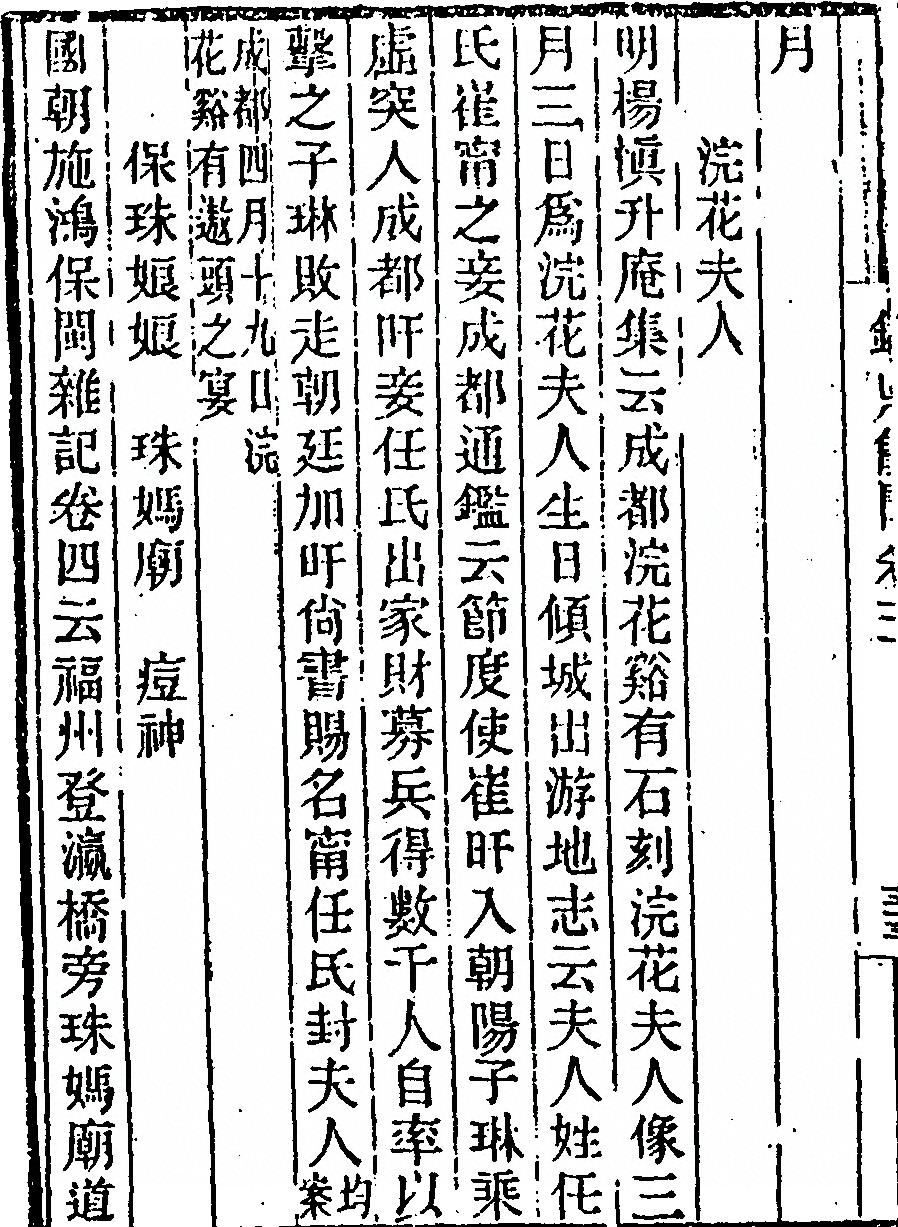 月
浣花夫人
明楊愼升庵集云成都浣花谿有石刻浣花夫人像三
月三日爲浣花夫人生日傾城出游地志云夫人姓任
氏崔甯之妾成都通鑑云節度使崔旰入朝陽子琳乘
虛突人成都旰妾任氏出家財募兵得數千人自率以
擊之子琳敗走朝廷加旰尙書賜名甯任氏封夫人均案
成都四月十九日浣
花谿有遨頭之宴
保珠娘娘　珠媽廟　痘神
國朝施鴻保閩雜記卷四云福州登瀛橋旁珠媽廟道